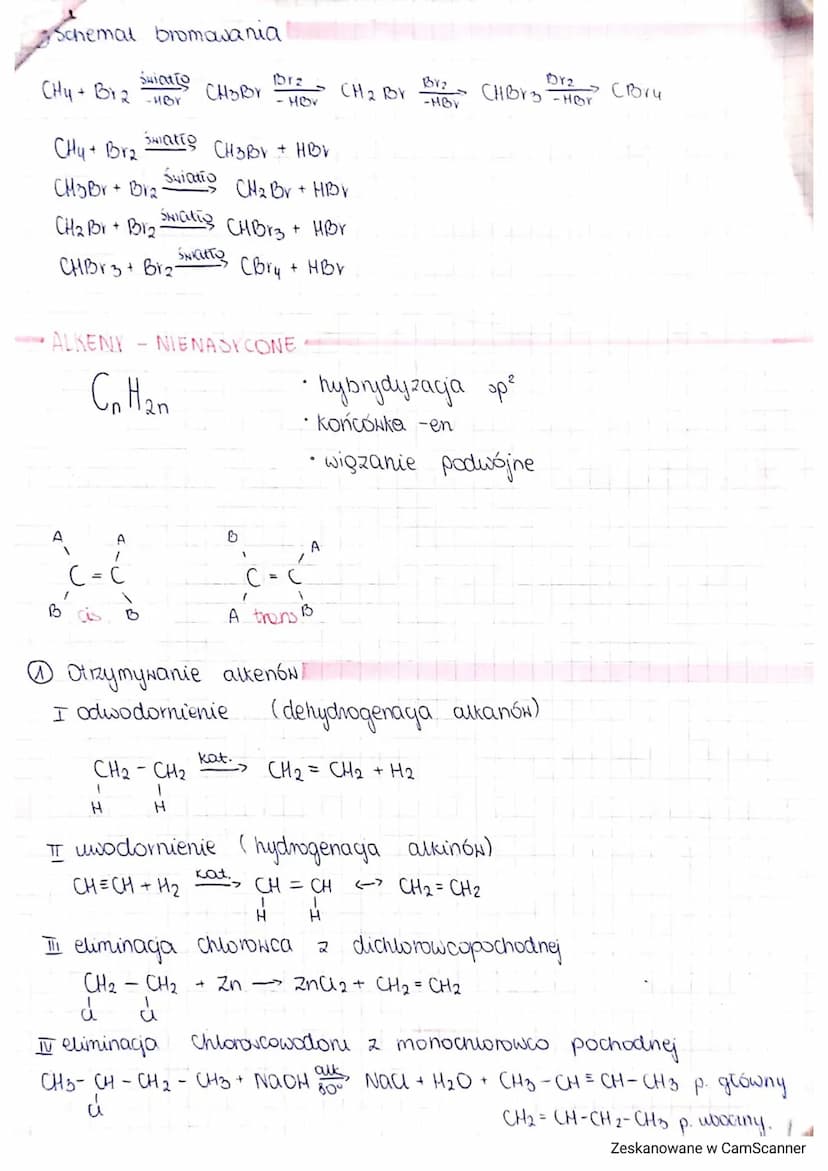 Schemat bromowania
CH4 + Br2 światło → -HBr CH3Br Br2 → -HBr CH2Br Br2 → -HBr CHBr3 Br2 → -HBr CBr4
CH4 + Br2 światło → CH3Br + HBr
CH3Br + Br2 światło → CH2Br + HBr
CH2Br + Br2 światło → CHBr3 + HBr
CHBr3 + Br2 światło → CBr4 + HBr
ALKENY - NIENASYCONE
CnH2n
· hybrydyzacja sp²
· końcówka -en
· wiązanie podwójne
A A B A
C = C C = C
B cis B A trans B
① Otrzymywanie alkenów
I odwodornienie (dehydrogenacja alkanów)
CH2 - CH2 kat. → CH2 = CH2 + H2
H H
II uwodornienie (hydrogenacja alkinów)
CH≡CH + H2 kat. → CH = CH ↔ CH2 = CH2
H H
III eliminacja chlorowca z dichlorowcopochodnej
CH2 - CH2 + Zn → ZnCl2 + CH2 = CH2
Cl Cl
IV eliminacja chlorowcowodoru z monochlorowco pochodnej
CH3 - CH - CH2 - CH3 + NaOH alk → 80° NaCl + H2O + CH3 - CH ≡ CH - CH3 p. główny
Cl
CH2 = CH - CH2 - CH3 p. uboczny.
Zeskanowane w CamScanner